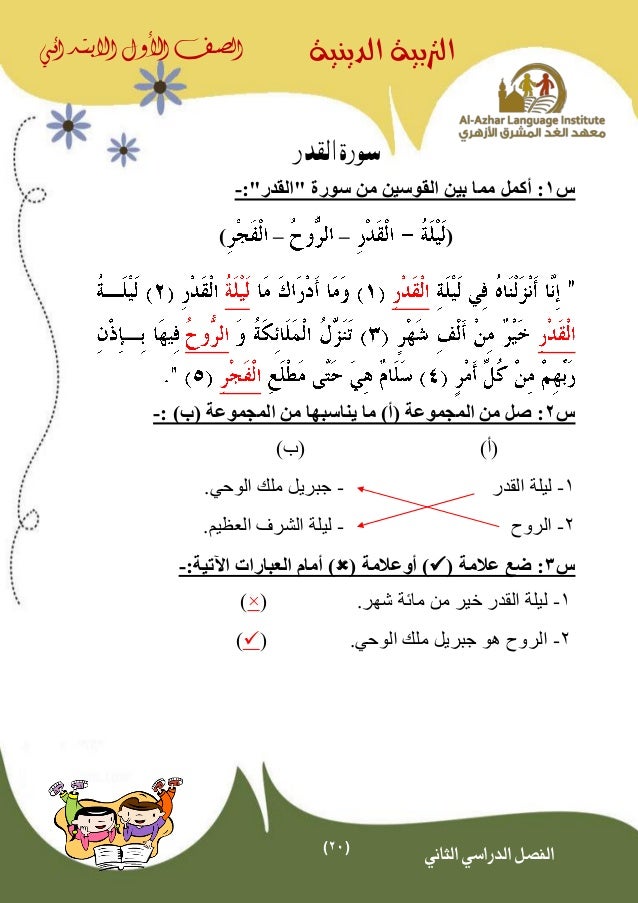 التربية الدينية
الصف الأول الابتدائي
Al-Azhar Language Institute
معهد الغد المشرق الأزهري
سورة القدر
س١: أكمل مما بين القوسين من سورة "القدر":-
(لَيْلَةُ – الْقَدْرِ – الرُّوحُ – الْفَجْرِ)
" إِنَّا أَنْزَلْنَاهُ فِي لَيْلَةِ الْقَدْرِ (١) وَمَا أَدْرَاكَ مَا لَيْلَةُ الْقَدْرِ (٢) لَيْلَـــةُ
الْقَدْرِ خَيْرٌ مِنْ أَلْفِ شَهْرٍ (٣) تَنَزَّلُ الْمَلَائِكَةُ وَ الرُّوحُ فِيهَا بِـــإِذْنِ
رَبِّهِمْ مِنْ كُلِّ أَمْرٍ (٤) سَلَامٌ هِيَ حَتَّى مَطْلَعِ الْفَجْرِ (٥) ".
س٢: صل من المجموعة (أ) ما يناسبها من المجموعة (ب) :-
(أ) (ب)
١- ليلة القدر - جبريل ملك الوحي.
٢- الروح - ليلة الشرف العظيم.
س٣: ضع علامة (✓) أوعلامة (×) أمام العبارات الآتية:-
١- ليلة القدر خير من مائة شهر. (×)
٢- الروح هو جبريل ملك الوحي. (✓)
الفصل الدراسي الثاني
(٢٠)